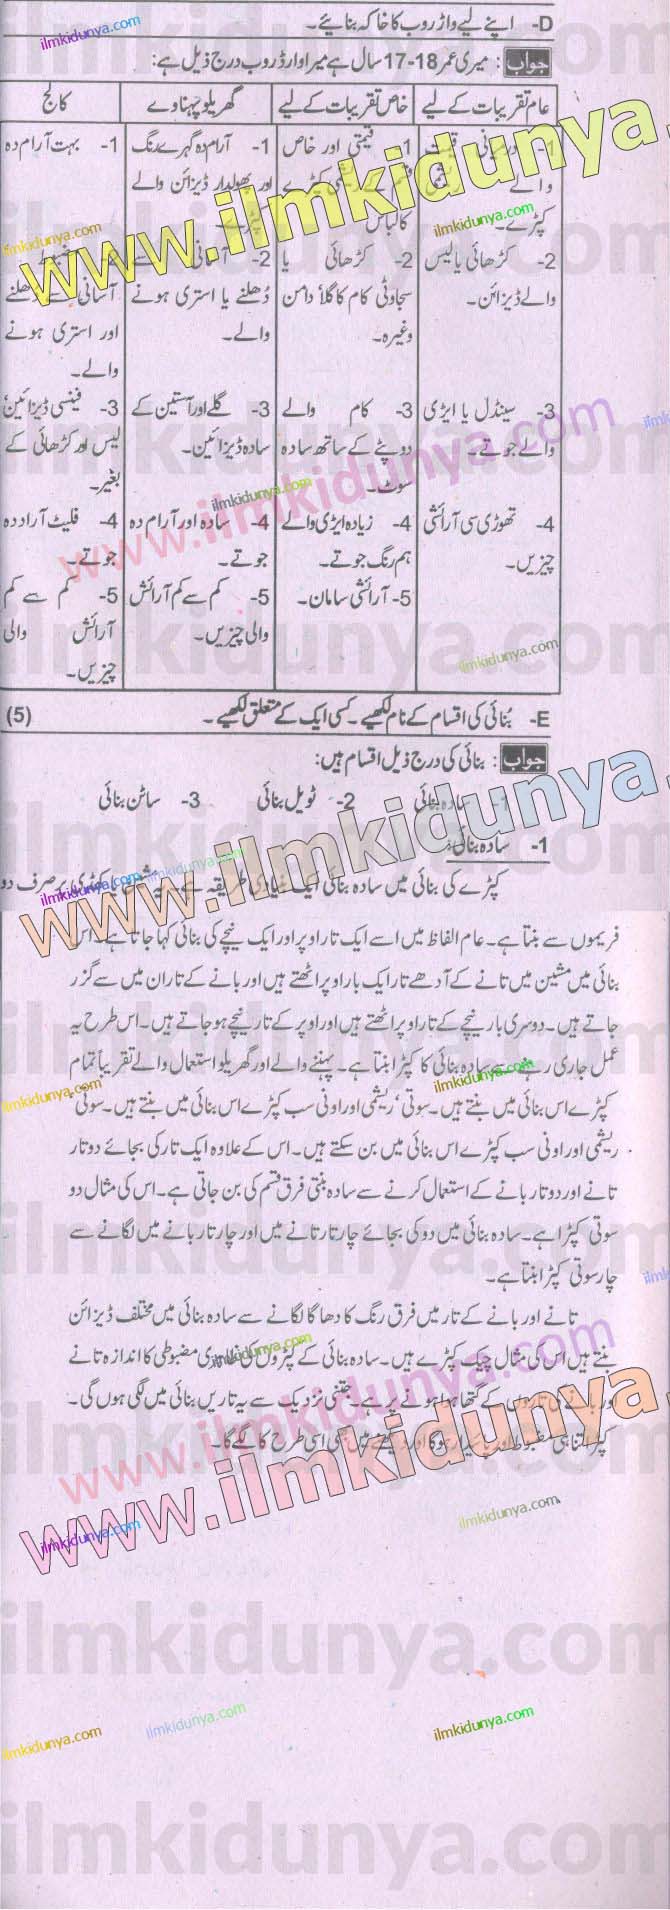 D- اپنے لیے واڈروب کا خاکہ بنائیے۔
جواب: میری عمر 18-17 سال ہے میرا وارڈروب درج ذیل ہے:
عام تقریبات کے لیے | خاص تقریبات کے لیے | گھریلو پہناوے | کالج
1- درمیانی قیمت والے ریشمی کپڑے۔ | 1- قیمتی اور خاص قسم کے ریشمی کپڑے کا لباس | 1- آرام دہ گہرے رنگ اور پھولدار ڈیزائن والے | 1- بہت آرام دہ
2- کڑھائی یا لیس والے ڈیزائن۔ | 2- کڑھائی یا سجاوٹی کام کا گلا، دامن وغیرہ۔ | 2- آسانی سے دُھلنے یا استری ہونے والے۔ | آسانی سے دُھلنے اور استری ہونے والے۔
3- سینڈل یا ایڑی والے جوتے۔ | 3- کام والے دوپٹے کے ساتھ سادہ سوٹ۔ | 3- گلے اور آستین کے سادہ ڈیزائین۔ | 3- فینسی ڈیزائین، لیس اور کڑھائی کے بغیر۔
4- تھوڑی سی آرائشی چیزیں۔ | 4- زیادہ ایڑی والے ہم رنگ جوتے۔ | 4- سادہ اور آرام دہ جوتے۔ | 4- فلیٹ آراد دہ جوتے۔
5- آرائشی سامان۔ | 5- کم سے کم آرائش والی چیزیں۔ | 5- کم سے کم آرائش والی چیزیں۔
E- بُنائی کی اقسام کے نام لکھیے۔ کسی ایک کے متعلق لکھیے۔ (5)
جواب: بنائی کی درج ذیل اقسام ہیں:
1- سادہ بنائی 2- ٹویل بنائی 3- ساٹن بنائی
1- سادہ بنائی:
کپڑے کی بنائی میں سادہ بنائی ایک بنیادی طریقہ ہے۔ یہ مشین یا کھڈی پر صرف دو
فریموں سے بنتا ہے۔ عام الفاظ میں اسے ایک تار اوپر اور ایک نیچے کی بنائی کہا جاتا ہے۔ اس
بنائی میں مشین میں تانے کے آدھے تار ایک بار اوپر اٹھتے ہیں اور بانے کے تار ان میں سے گزر
جاتے ہیں۔ دوسری بار نیچے کے تار اوپر اٹھتے ہیں اور اوپر کے تار نیچے ہو جاتے ہیں۔ اس طرح یہ
عمل جاری رہنے سے سادہ بنائی کا کپڑا بنتا ہے۔ پہننے والے اور گھریلو استعمال والے تقریباً تمام
کپڑے اس بنائی میں بنتے ہیں۔ سوتی، ریشمی اور اونی سب کپڑے اس بنائی میں بنتے ہیں۔ سوتی،
ریشمی اور اونی سب کپڑے اس بنائی میں بن سکتے ہیں۔ اس کے علاوہ ایک تار کی بجائے دو تار
تانے اور دو تار بانے کے استعمال کرنے سے سادہ بنتی فرق قسم کی بن جاتی ہے۔ اس کی مثال دو
سوتی کپڑا ہے۔ سادہ بنائی میں دو کی بجائے چار تار تانے میں اور چار تار بانے میں لگانے سے
چار سوتی کپڑا بنتا ہے۔
تانے اور بانے کے تار میں فرق رنگ کا دھاگا لگانے سے سادہ بنائی میں مختلف ڈیزائن
بنتے ہیں اس کی مثال چیک کپڑے ہیں۔ سادہ بنائی کے کپڑوں کی مضبوطی کا اندازہ تانے
اور بانے کی تاروں کے گتھا ہوا ہونے پر ہے۔ جتنی نزدیک سے یہ تاریں بنائی میں لگی ہوں گی۔
کپڑا اتنا ہی مضبوط اور پائیدار ہوگا اور دیکھنے میں بھی اسی طرح کا لگے گا۔
www.ilmkidunya.com
ilmkidunya.com